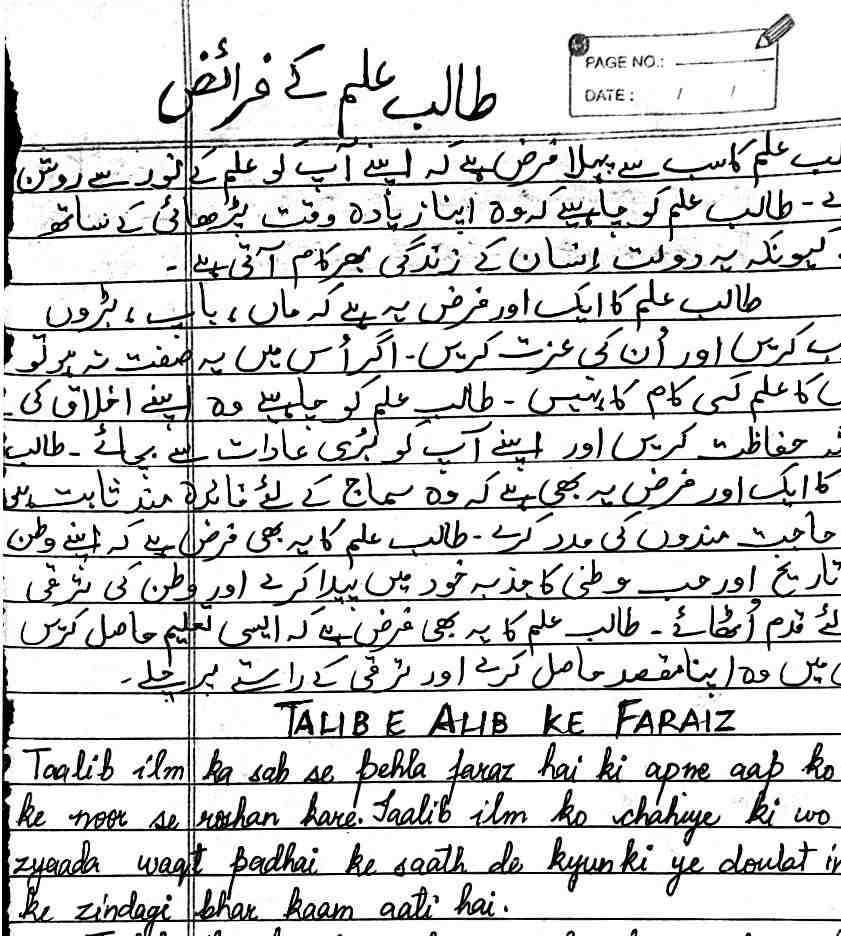 طالب علم کے فرائض
PAGE NO.:
DATE: / /
علم کا سب سے پہلا فرض ہے کہ اپنے آپ کو علم کے نور سے روشن
طالب علم کو چاہیے کہ وہ اپنا زیادہ وقت پڑھائی کے ساتھ
کیونکہ یہ دولت اِنسان کے زندگی بھر کام آتی ہے ۔
طالب علم کا ایک اور فرض یہ ہے کہ ماں ، باپ ، بڑوں
کریں اور اُن کی عزت کریں ۔ اگر اُس میں یہ صفت نہ ہو تو
کا علم کسی کام کا نہیں ۔ طالب علم کو چاہیے وہ اپنے اخلاق کی
حفاظت کریں اور اپنے آپ کو بُری عادات سے بچائے ۔ طالب
کا ایک اور فرض یہ بھی ہے کہ وہ سماج کے لئے فائدہ مند ثابت
حاجت مندوں کی مدد کرے ۔ طالب علم کا یہ بھی فرض ہے کہ اپنے وطن
تاریخ اور حب وطنی کا جذبہ خود میں پیدا کرے اور وطن کی ترقی
قدم اُٹھائے ۔ طالب علم کا یہ بھی فرض ہے کہ ایسی تعلیم حاصل کریں
میں وہ اپنا مقصد حاصل کرے اور ترقی کے راستے پر چلے ۔
TALIB E ALIB KE FARAIZ
Taalib ilm ka sab se pehla faraz hai ki apne aap ko
ke noor se roshan kare. Taalib ilm ko chahiye ki wo
zyaada waqt padhai ke saath de kyunki ye doulat
ke zindagi bhar kaam aati hai.